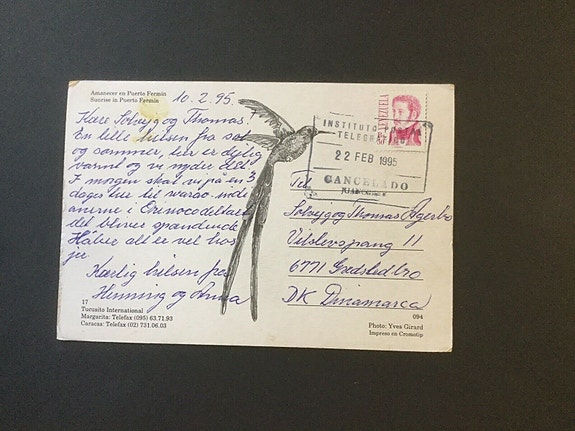 Amanecer en Puerto Fermin
Sunrise in Puerto Fermin
10.2.95.
Kære Solvejg og Thomas!
En lille hilsen fra sol
og sommer, her er dejlig
varmt og vi nyder det.
I morgen skal vi på en 3
dages tur til warao-indi
anerne i Orinocodeltaet
det bliver spændende
Håber alt er vel hos
jer
Kærlig hilsen fra
Henning og Anna
17
Turusita International
Margarita: Telefax (095) 63.71.93
Caracas: Telefax (02) 731.06.03
VENEZUELA
INSTITUTO
TELEGR
22 FEB 1995
CANCELADO
Til
Solvejg og Thomas Agerbo
Vilslevspang 11
6771 Gredstedbro
DK Dinamarca
094
Photo: Yves Girard
Impreso en Cromotip